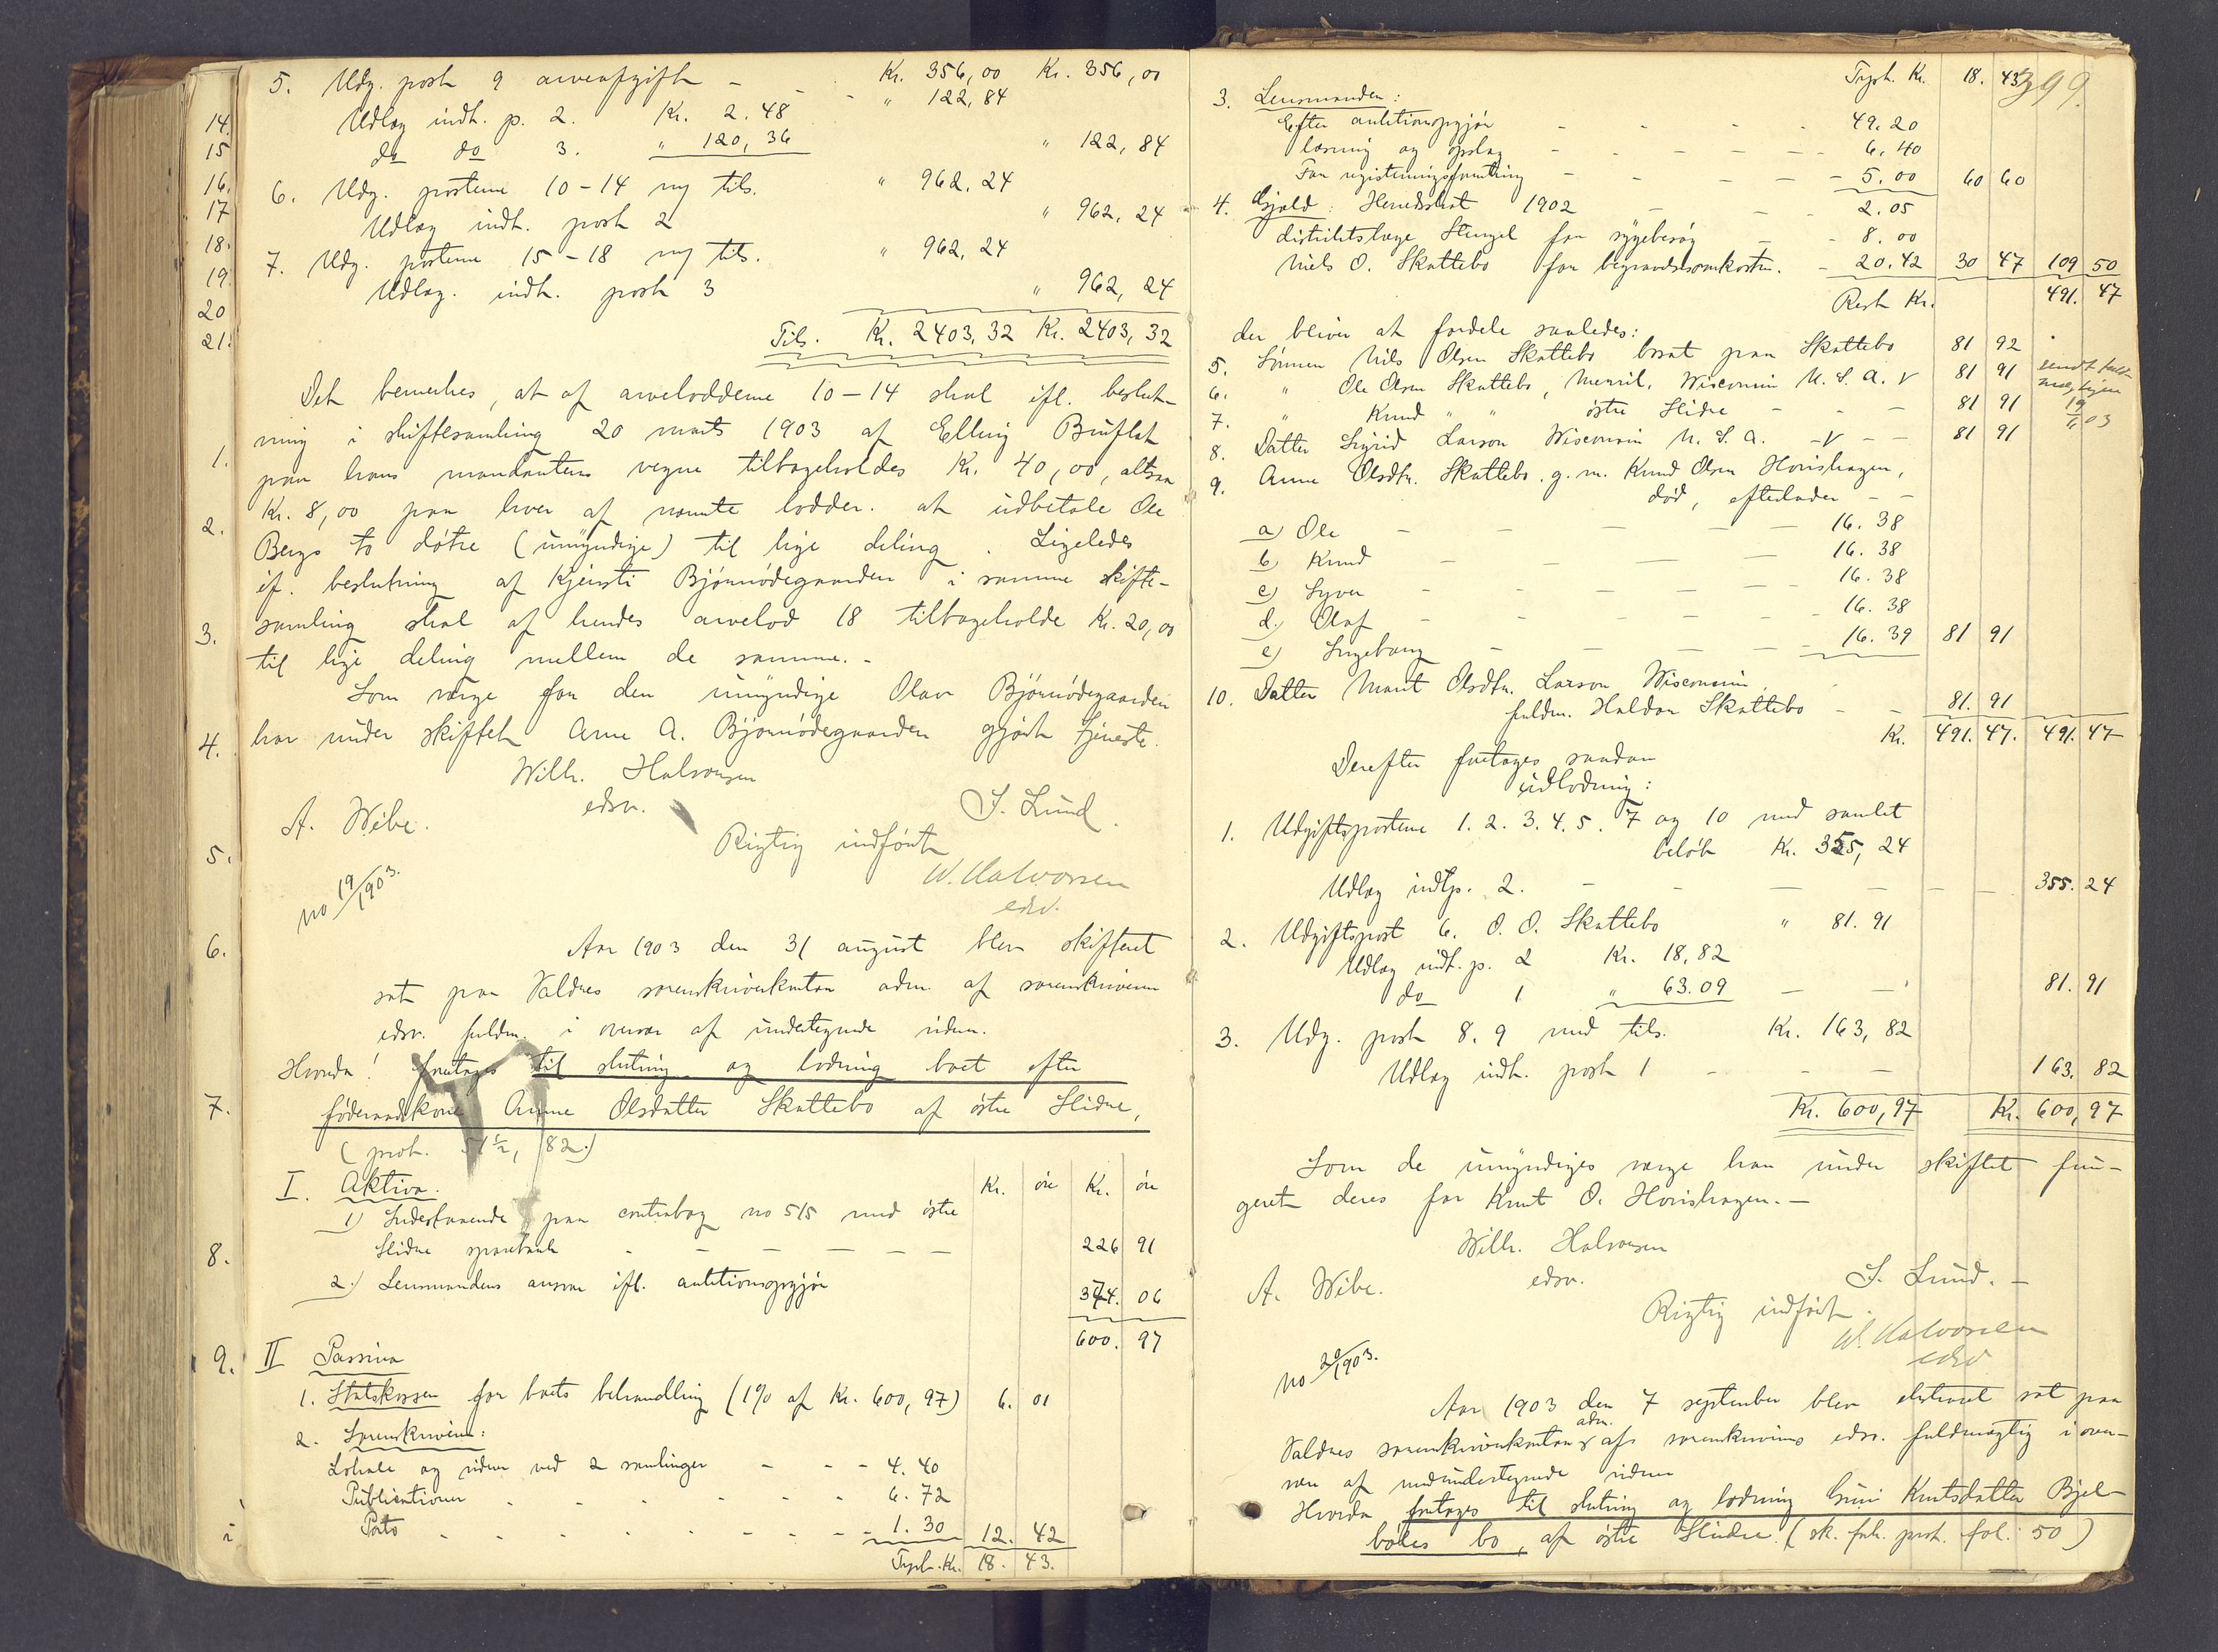 5. Udg. post 9 arveafgift - - - Kr. 356,00 Kr. 356,00
Udlæg indt. p. 2. Kr. 2.48 " 122,84
do do 3. " 120,36 " 122,84
6. Udg. posterne 10-14 tils. " 962.24
Udlæg indt. post 2 " 962,24
7. Udg. posterne 15-18 tils. " 962,24
Udlæg. indt. post 3 " 962,24
Tils. Kr. 2403,32 Kr. 2403,32
Det bemerkes, at af arvelodderne 10-14 skal ifl. beslut-
ning i skiftesamling 20 marts 1903 af Elling Bruflat
paa hans mandanters vegne tilbageholdes Kr. 40,00, altsaa
Kr. 8,00 paa hver af nævnte lodder. at udbetale Ole
Bergs to døtre (umyndige) til lige deling. Ligeledes
if. beslutning af Kjersti Bjørnødegaarden i samme skifte-
samling skal af hendes arvelod 18 tilbageholde Kr. 20,00
til lige deling mellem de samme. -
Som verge for den umyndige Olav Bjørnødegaarden
har under skiftet Arne A. Bjørnødegaarden gjort tjeneste.
Wilh. Halvorsen
edsv.
A. Wibe. S. Lund.
Rigtig indført
W. Halvorsen
edsv.
no 19/1903.
Aar 1903 den 31 august blev skifteret
sat paa Valdres sorenskriverkontor adm. af sorenskriverens
edsv. fuldm. i overvær af undertegnede vidner.
Hvorda! foretoges til slutning og lodning boet efter
føderaadskone Anne Olsdatter Skattebo af østre Slidre,
(prot. 82.)
I. Aktiva. Kr. øre Kr. øre
1) Indestaaende paa contrabog no 515 med østre
Slidre sparebank - - - - - - 226 91
2.) Lensmandens ansvar ifl. auktionsopgjør 374. 06
600. 97
II Passiva
1. Statskassen for boets behandling (1% af Kr. 600,97) 6. 01
2. Sorenskriveren:
Lokale og vidner ved 2 samlinger - - - 4.40
Publicationer - - - - - - 6.72
Porto - - - - - - - 1.30 12. 42
Trpt. Kr. 18. 43.
14.
15
16.
17
18.
19.
20
21.
1.
2.
3.
4.
5.
6.
7.
8.
9.
399.
Trpt. Kr. 18. 43
3. Lensmanden:
Efter auktionsopgjør - - - - 49.20
læsning og opslag - - - - - 6.40
For registeringsforretning - - - - - 5.00 60 60
4. Gjæld: Herredsskat 1902 - - - 2.05
distriktslæge Stengel for sygebesøg - - 8.00
Niels O. Skattebo for begravelsesomkostn. - 20.42 30 47 109 50
Rest Kr. 491. 47
der bliver at fordele saaledes:
5. Sønnen Nils Olsen Skattebo bosat paa Skattebo 81 92
6. " Ole Olsen Skattebo, Merril, Wisconsin U.S.A. v 81 91
7. " Knud " " østre Slidre - - - 81 91
8. Datter Sigrid Larson Wisconsin U.S.A. -v- - 81 91
9. Anne Olsdtr. Skattebo. g.m. Knud Olsen Hovishagen,
død, efterlader - -
a) Ole - - - - - 16.38
b) Knud - - - - 16.38
c) Syver - - - - - 16.38
d.) Olaf - - - - - 16.38
e) Ingeborg - - - - - 16.39 81 91
10. Datter Marit Olsdtr. Larson Wisconsin
fuldm. Haldor Skattebo - - 81. 91
Kr. 491. 47. 491. 47
Derefter foretages saadan
udlodning:
1. Udgiftsposterne 1. 2. 3. 4. 5. 7 og 10 med samlet
beløb Kr. 355,24
Udlæg indtp. 2. - - - - - - 355. 24
2. Udgiftspost 6. O. O. Skattebo " 81.91
Udlæg indt. p. 2 Kr. 18,82
do 1 " 63.09 - - 81. 91
3. Udg. post 8. 9 med tils. Kr. 163,82
Udlæg indt. post 1 - - - 163. 82
Kr. 600,97 Kr. 600,97
Som de umyndiges verge har under skiftet fun-
geret deres far Knut O. Hovishagen. -
Wilh. Halvorsen
edsv.
A. Wibe. S. Lund. -
Rigtig indført.
W. Halvorsen
edsv
no 20/1903.
Aar 1903 den 7 september blev skifteret sat paa
Valdres sorenskriverkontor adm. af sorenskriverens edsv. fuldmægtig i over-
vær af medundertegnede vidner
Hvorda foretoges til slutning og lodning Guri Knutsdatter Bjel-
bøles bo, af østre Slidre. (sk. forh. prot. fol. 50)